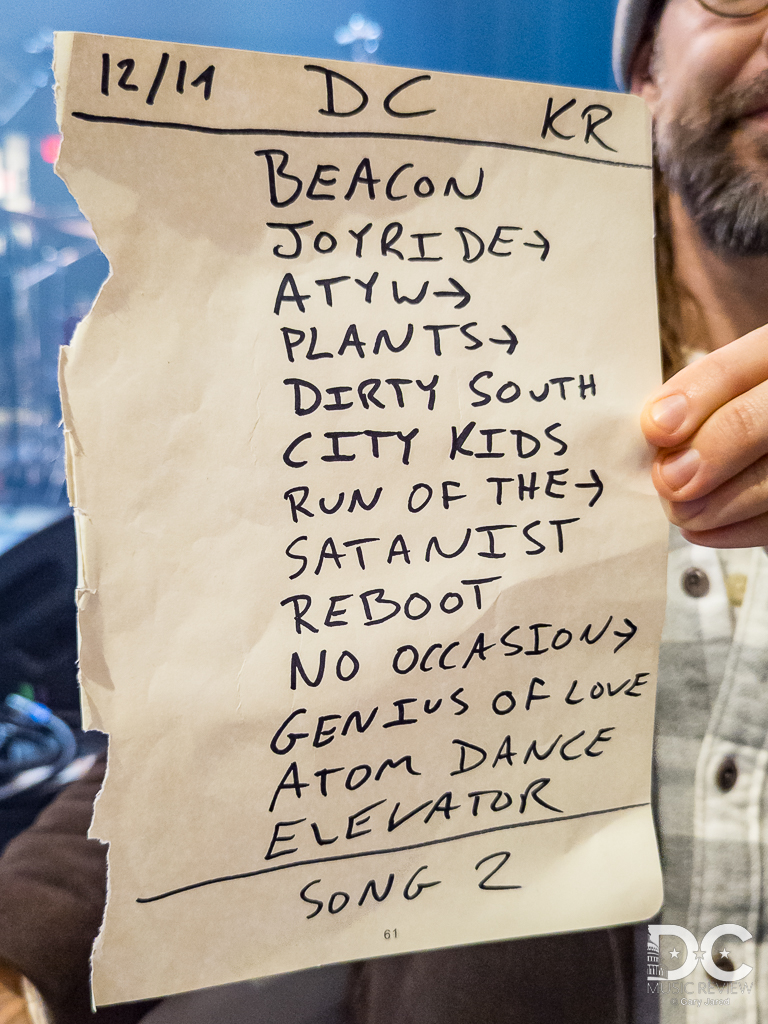 12/14 DC KR
BEACON
JOYRIDE→
ATYW→
PLANTS→
DIRTY SOUTH
CITY KIDS
RUN OF THE→
SATANIST
REBOOT
NO OCCASION→
GENIUS OF LOVE
ATOM DANCE
ELEVATOR
SONG 2
61
DC
MUSIC REVIEW
Gary Jared